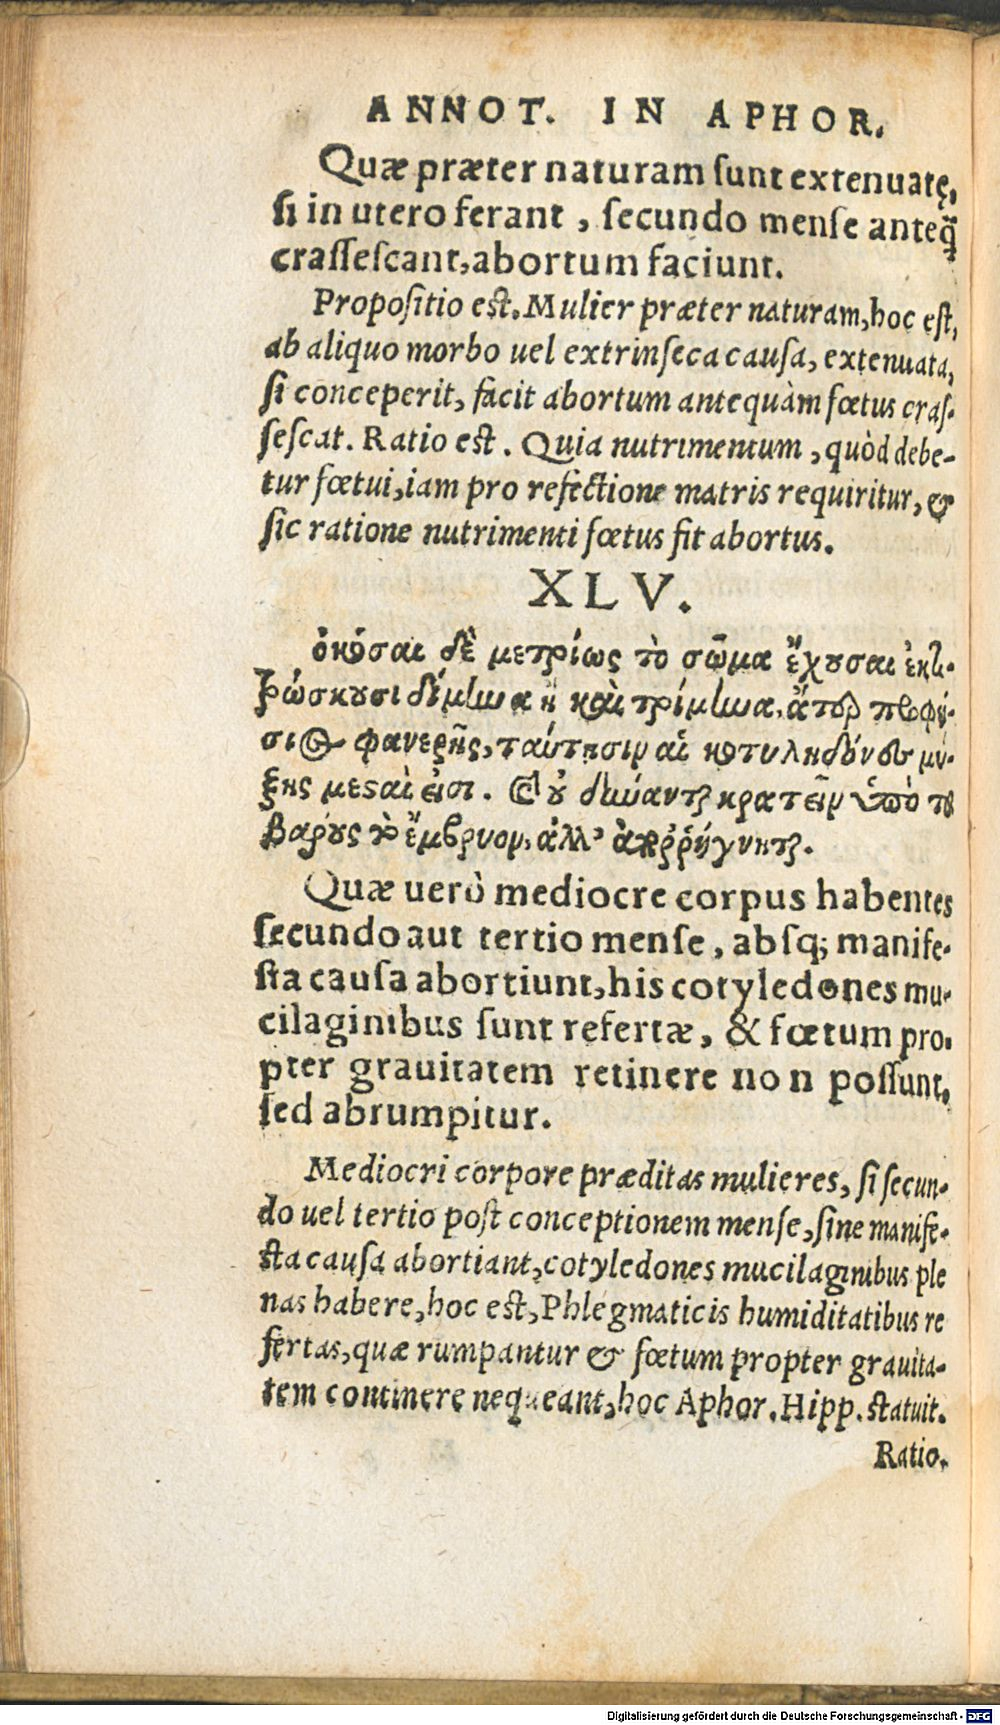 ANNOT. IN APHOR.
Quæ præter naturam ſunt extenuatę,
ſi in utero ferant, ſecundo menſe anteq̃
craſſeſcant, abortum faciunt.
Propoſitio eſt. Mulier præter naturam, hoc eſt,
ab aliquo morbo uel extrinſeca cauſa, extenuata,
ſi conceperit, facit abortum antequàm fœtus craſ-
ſeſcat. Ratio eſt. Quia nutrimentum, quòd debe-
tur fœtui, iam pro refectione matris requiritur, &
ſic ratione nutrimenti fœtus fit abortus.
XLV.
ὁκόσαι δὲ μετρίως τὸ σῶμα ἔχουσαι ἐκτι-
τρώσκουσι δίμηνα ἢ καὶ τρίμηνα, ἄτερ προφά-
σιος φανερῆς, ταύτῃσιν αἱ κοτυληδόνες μύ-
ξης μεσταὶ εἰσι. καὶ οὐ δύνανται κρατεῖν ὑπὸ τοῦ
βάρους τὸ ἔμβρυον, ἀλλ' ἀπορρήγνυται.
Quæ uerò mediocre corpus habentes
ſecundo aut tertio menſe, abſq; manife-
ſta cauſa abortiunt, his cotyledones mu-
cilaginibus ſunt refertæ, & fœtum pro-
pter grauitatem retinere non poſſunt,
ſed abrumpitur.
Mediocri corpore præditas mulieres, ſi ſecun-
do uel tertio poſt conceptionem menſe, ſine manife-
ſta cauſa abortiant, cotyledones mucilaginibus ple
nas habere, hoc eſt, Phlegmaticis humiditatibus re
fertas, quæ rumpantur & fœtum propter grauita-
tem continere nequeant, hoc Aphor. Hipp. ſtatuit.
Ratio.
Digitalisierung gefördert durch die Deutsche Forschungsgemeinschaft - DFG